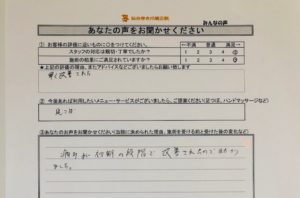 仙台中央代替医院
みんなの声
あなたの声をお聞かせください
① お客様の評価に近いものに○をつけてください。
←不満 普通 満足→
スタッフの対応は親切・丁寧でしたか？
施術の結果にご満足されていますか？
★上記の評価の理由、またアドバイスなどございましたらお願い致します
早く改善された
② 今後あれば利用したいメニュー・サービスがございましたら、ご提案ください(足つぼ、ハンドマッサージなど)
足つぼ
③あなたのお声をお聞かせください(当院に決められた理由、施術を受ける前と受けた後の変化など)
痛みが 施術の段階で 改善されたので
ました。